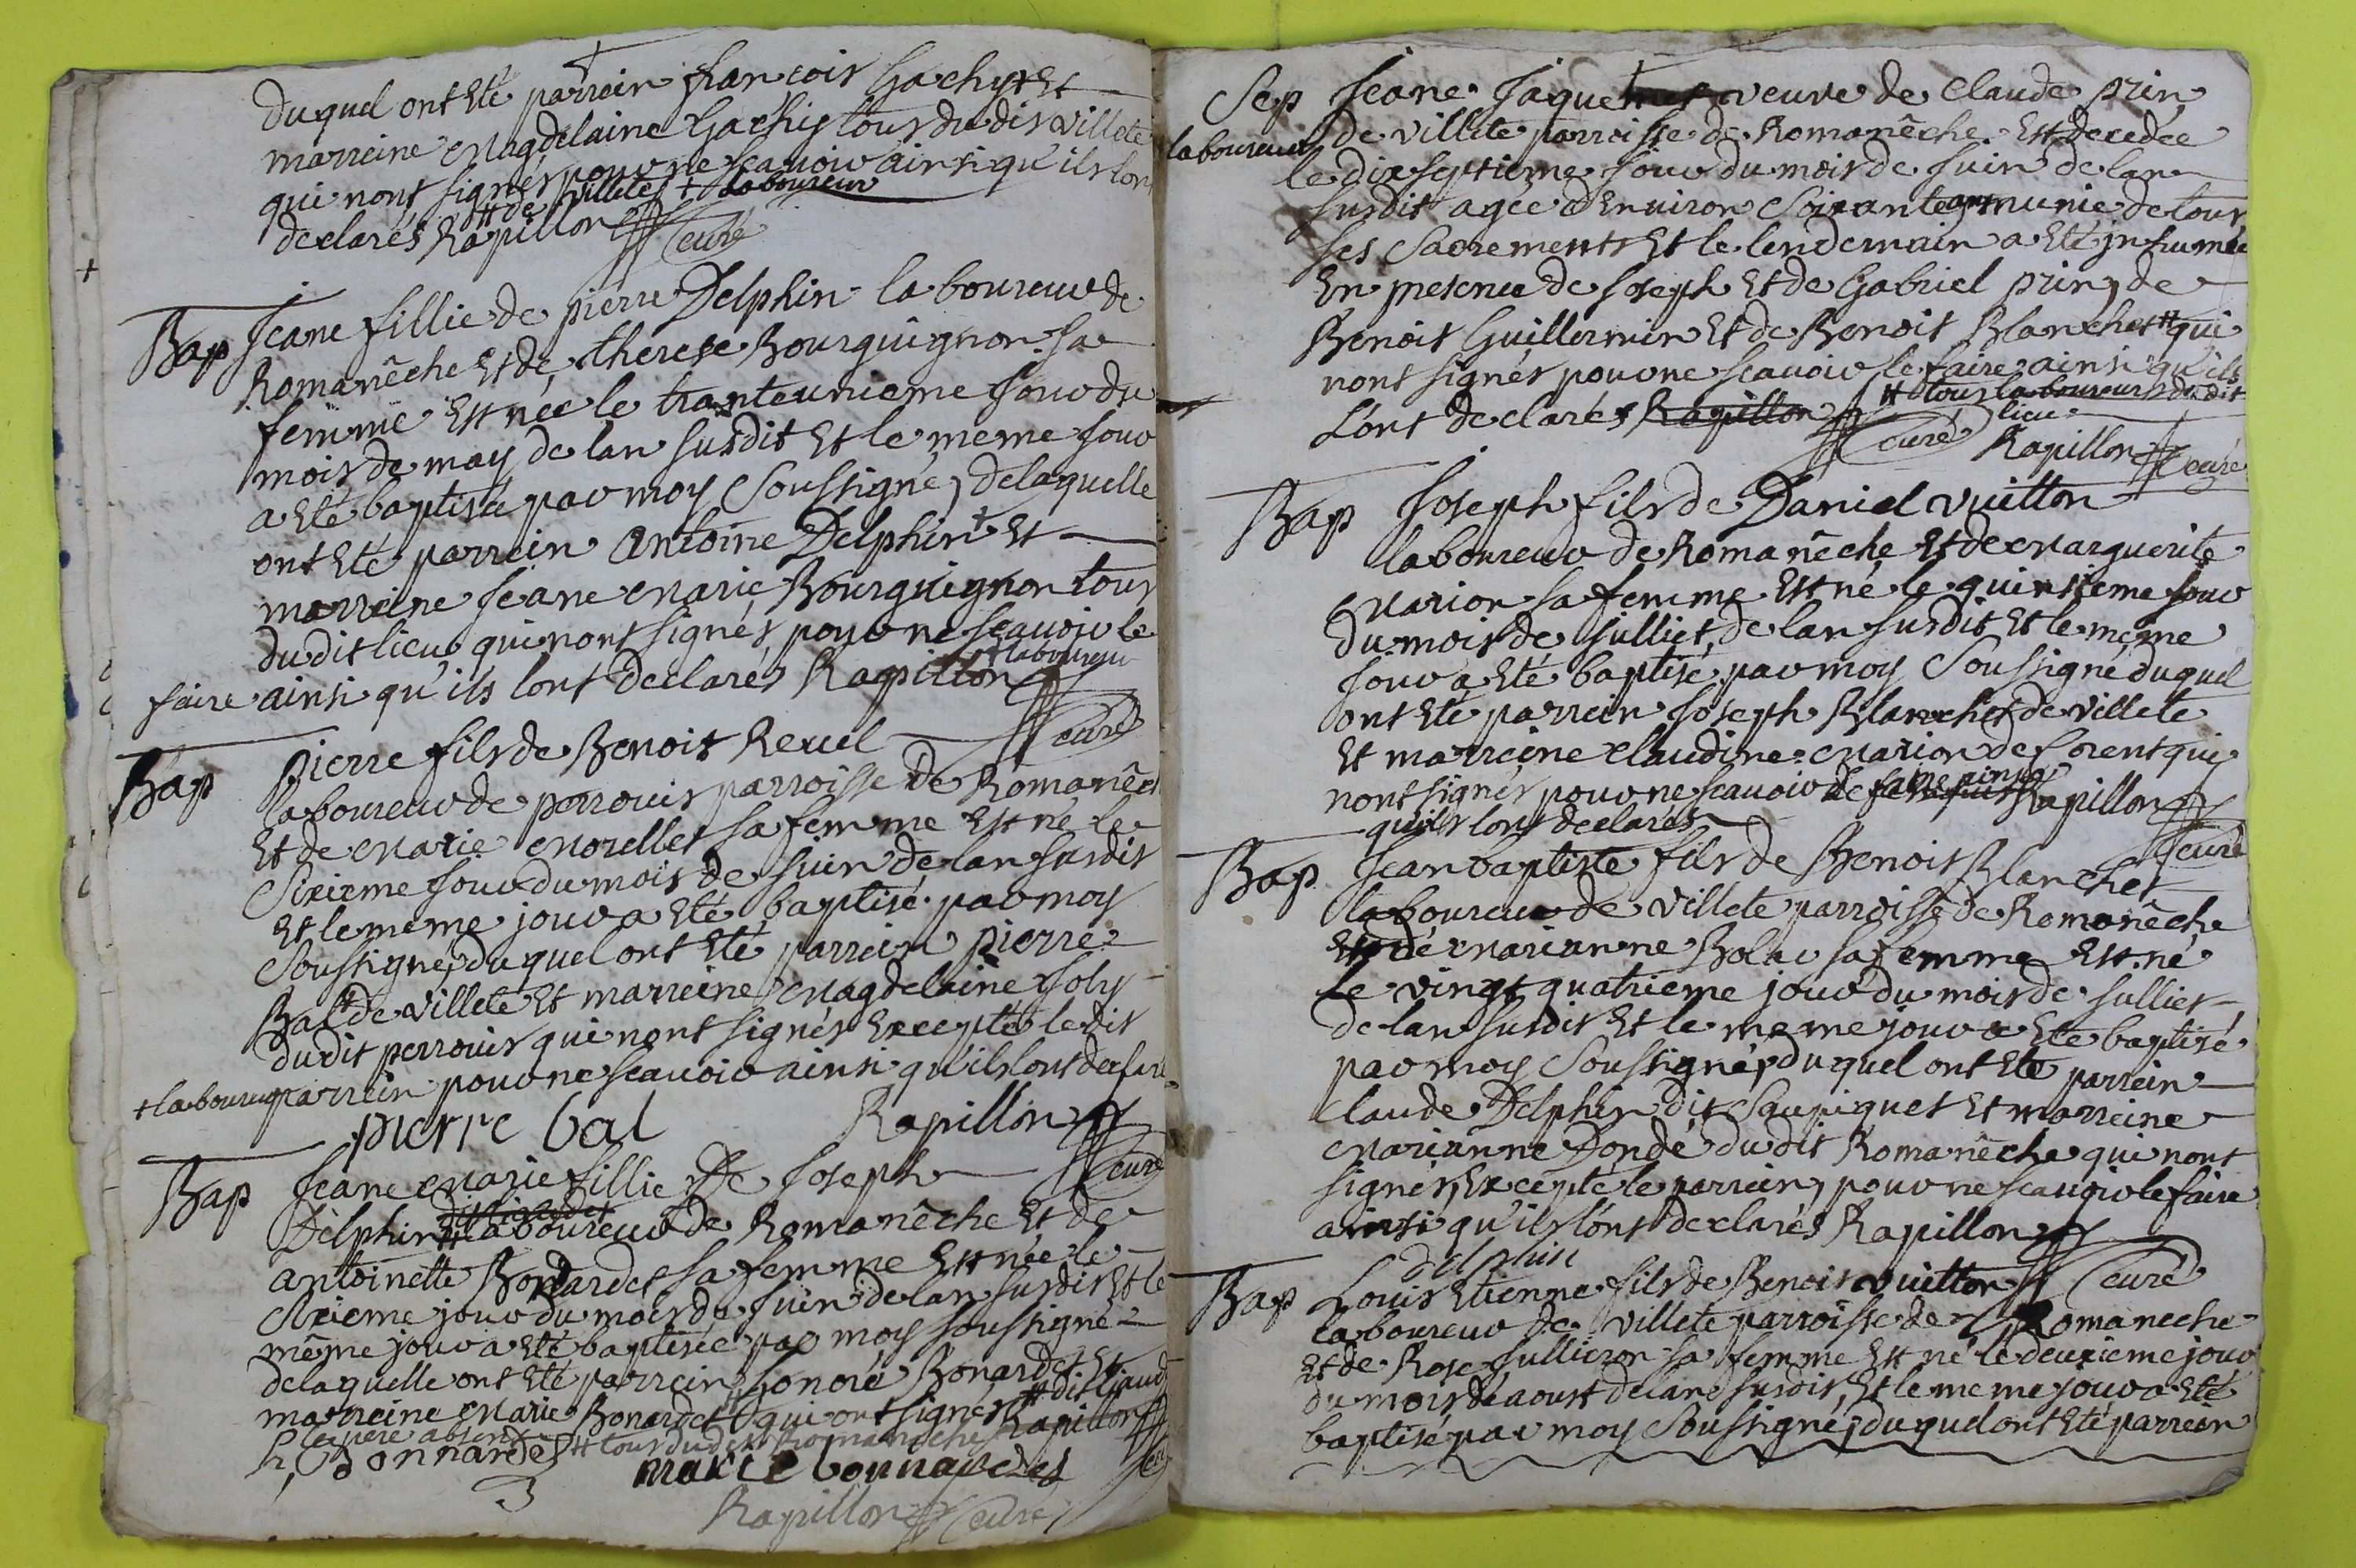 duquel ont Eté parrein francois Gachyt Et
marreine Magdelaine Gachy tous du dit villete
qui nont signés pour ne scauoir ainsi qu'ils lont
# de villetes + laboureur
declarés Rapillon curé
Bap Jeane fillie de pierre Delphin laboureur de
Romanêche Et de therese Bourguignon sa
femme Est née le tranteunieme Jour du
mois de may de lan susdit Et le meme Jour
a Eté baptisée par moy Soussigné, delaquelle
ont Eté parrein Antoine Delphin + Et
marreine Jeane Marie Bourguignon tous
dudit lieu qui nont signés pour ne scauoir le
+ laboureur
faire ainsi qu'ils lont declarés Rapillon
curé
Bap pierre fils de Benoit Reuel
laboureur de perrouis parroisse de Romanêch
Et de Marie Morellet sa femme Est né le
Sixieme Jour du mois de Juin de lan susdit
Et le meme jour a Eté baptisé par moy
Soussigné, duquel ont Eté parrein pierre
Bal + de villete Et marreine Magdelaine Joly
dudit perrouis qui nont signés Excepté le dit
+ laboureur parrein pour ne scauoir ainsi qu'ils lont declaré
pierre bal Rapillon
curé
Bap Jeane Marie fillie De Joseph
Delphin # laboureur de Romanêche Et de
antoinette Bonardet sa femme Est née le
Sixieme jour du mois de Juin de lan susdit Et le
même jour a Eté baptisée par moy soussigné
delaquelle ont Eté parrein honoré Bonardet Et
# dit Giaud
marreine Marie Bonardet qui ont signés Rapillon
le pere absent # tous dudit Romanêche
h, bonnardet
marie bonnardet
Rapillon curé
Sep Jeane Jaquemet veuve de Claude prin
laboureur de villete parroisse de Romanêche Est decedée
le dix septieme Jour du mois de Juin de lan
susdit agée d'Enuiron Soixante ans munie de tous
ses Sacrements Et le lendemain a Eté inhumée
En presence de Joseph Et de Gabriel prin, de
Benoit Guillermin Et de Benoit Blanchet # qui
nont signés pour ne scauoir le faire ainsi qu'ils
# tous laboureurs dudit
L'ont declarés Rapillon lieu
curé Rapillon curé
Bap Joseph fils de Daniel vuitton
laboureur de Romanêche Et de Marguerite
Marion sa femme Est né le quinsieme Jour
du mois de Julliet de lan susdit Et le même
Jour a Eté baptisé par moy Soussigné duquel
ont Eté parrein Joseph Blanchet de villete
Et marreine Claudine Marion de Corent qui
nont signés pour ne scauoir le faire ainsi Rapillon
qu'ils lont declarés
curé
Bap Jean baptiste fils de Benoit Blanchet
laboureur de villete parroisse de Romanêche
Et de Marianne Bolar sa femme Est né
Le vingt quatrieme jour du mois de Julliet
de lan susdit Et le meme jour a Eté baptisé
par moy Soussigné, duquel ont Eté parrein
Claude Delphin dit Saupiquet Et marreine
Marianne Dondé du dit Romanêche qui nont
signés, Excepté le parrein, pour ne scauoir le faire
ainsi qu'ils lont declarés Rapillon
delphin
curé
Bap Louis Etienne fils de Benoit vuitton
laboureur de villete parroisse de Romaneche
et de Rose Jullieron sa femme Est né le deuxieme jour
du mois de aoust de lan susdit, Et le meme jour a Eté
baptisé par moy Soussigné, duquel ont Eté parrein